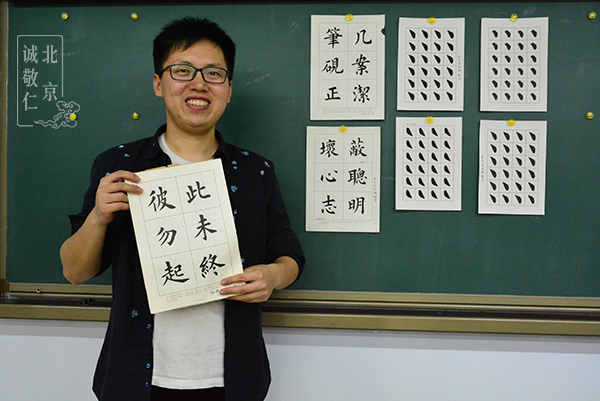 北京
诚敬仁
此未終
彼勿起
几案潔
筆硯正
蔽聰明
壞心志